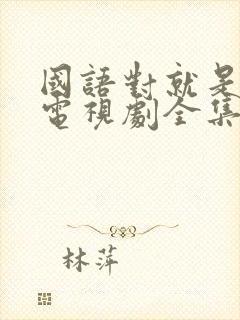 國語對就是
電視劇全集
林萍